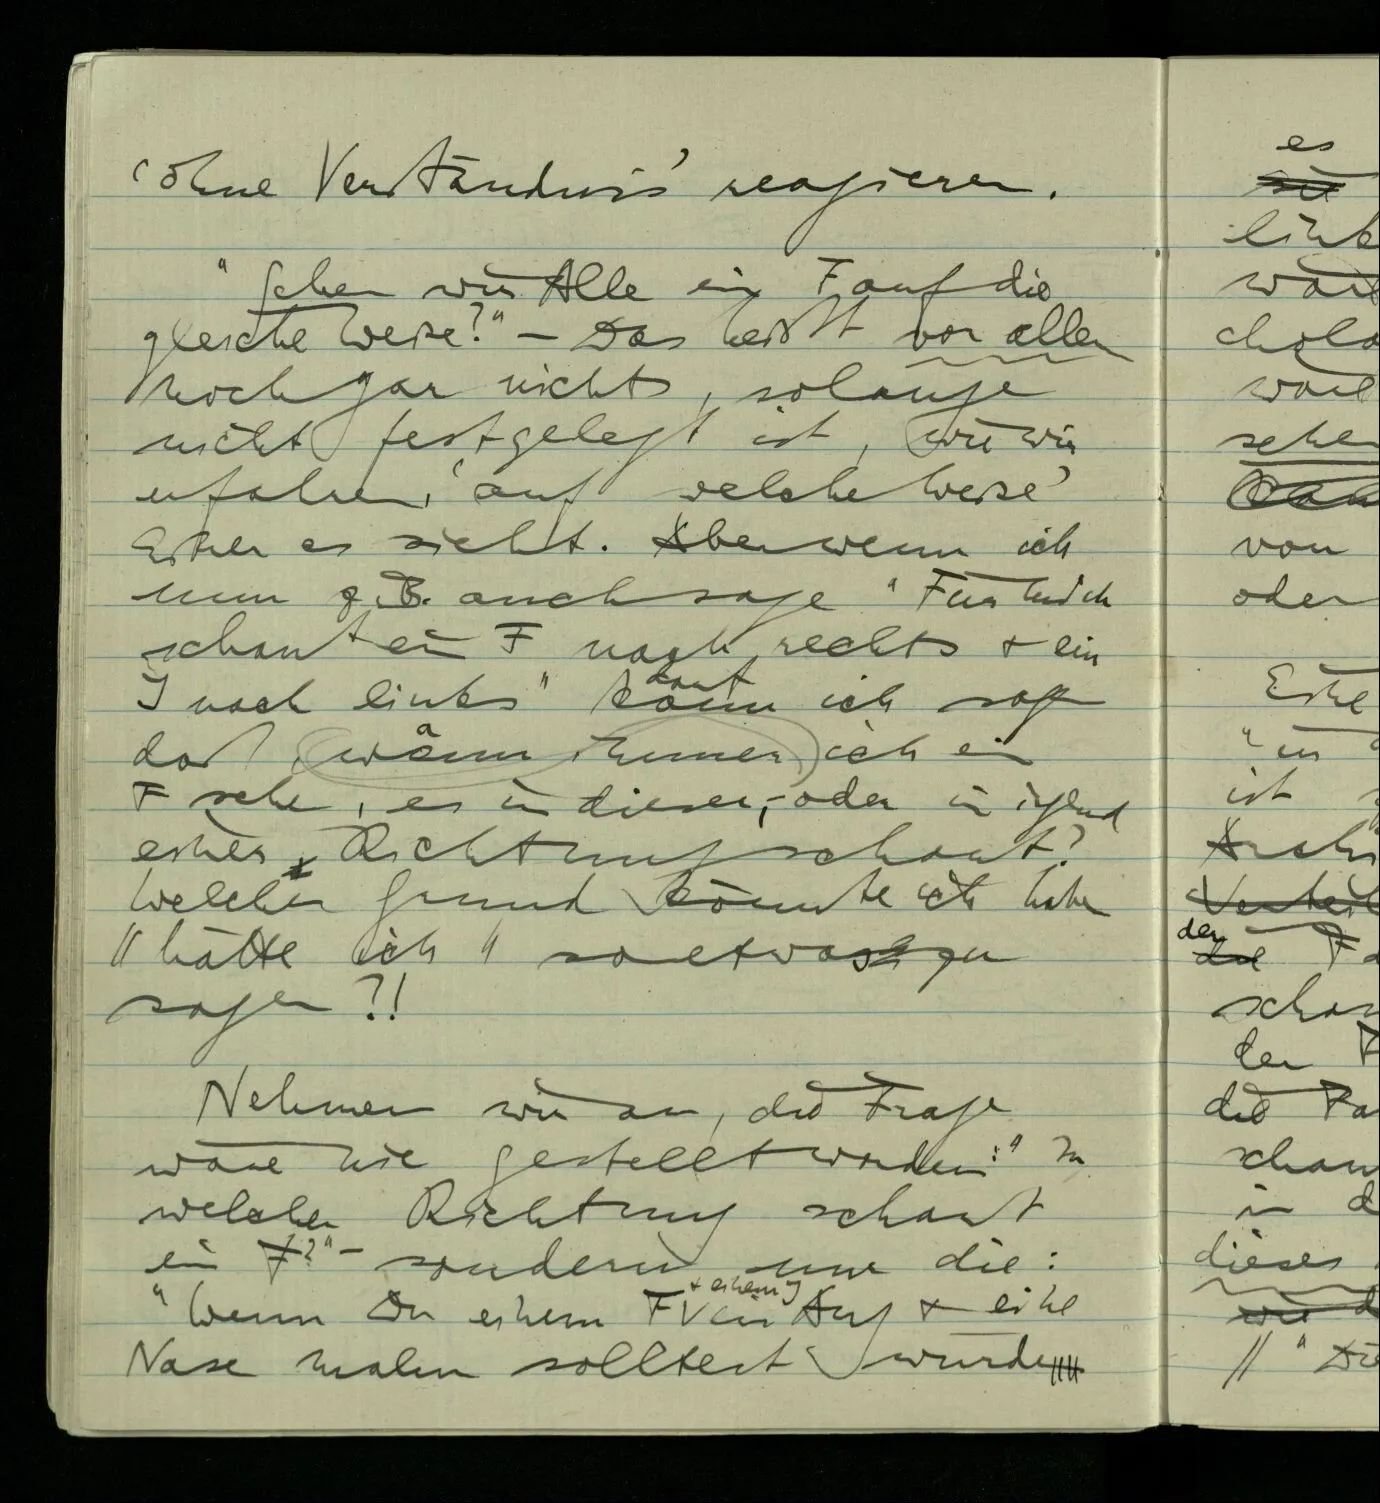 'ohne Verständnis' reagieren.
"Sehen wir Alle ein F auf die
gleiche Weise?" – Das heißt vor allem
noch gar nichts, solange
nicht festgelegt ist, wie wir
erfahren, 'auf welche Weise'
Einer es sieht. Aber wenn ich
nun z.B. auch sage "Für mich
schaut ein F nach rechts + ein
J nach links"
kann ich sagen
daß, wann immer ich ein
F sehe, es in dieser, – oder in irgend
einer Richtung schaut?
Welchen Grund könnte ich haben
// hätte ich // so etwas zu
sagen?!
Nehmen wir an, die Frage
wäre nie gestellt worden: " In
welcher Richtung schaut
ein F?" – sondern nur die:
+ einem J
"Wenn Du einem F ein Aug + eine
Nase malen solltest, würde
es
link
von
oder
ist
den
F
schau
der F
die
schau
in d
dieses
// "